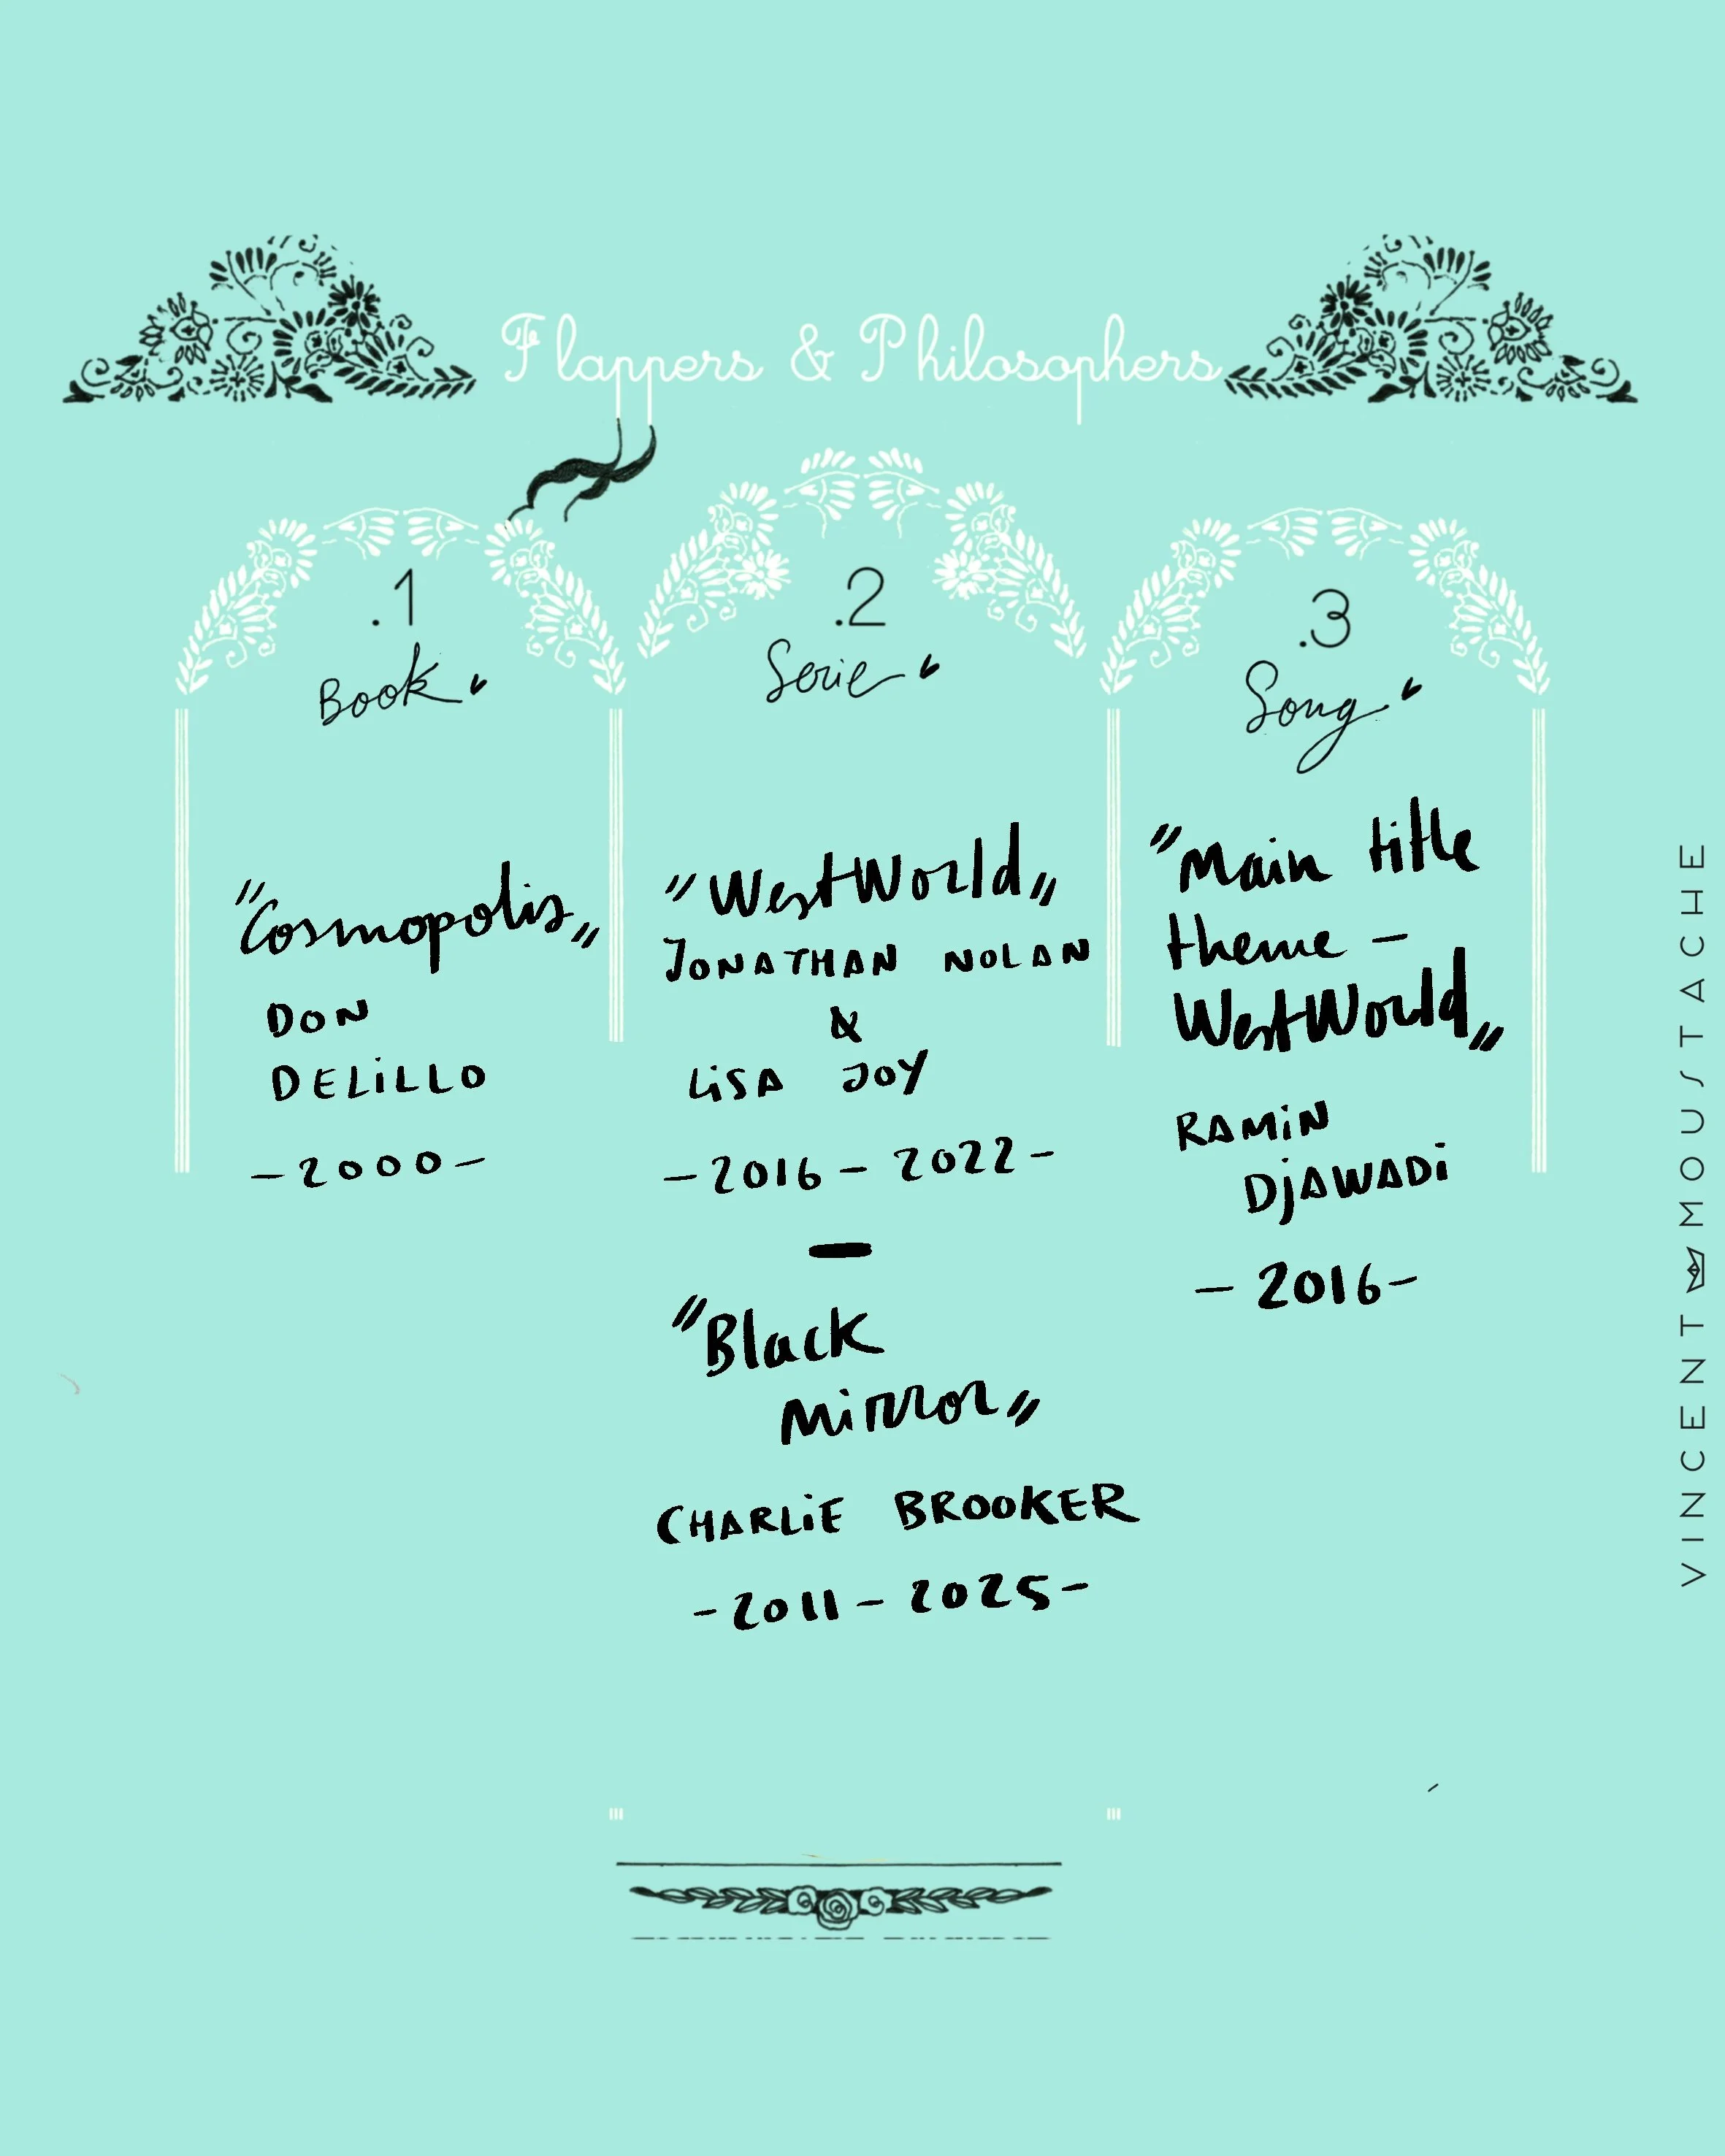 Flappers & Philosophers
.1
Book
"Cosmopolis"
DON
DELiLLO
-2000-
.2
Serie
"WestWorld"
JONATHAN NOLAN
&
LiSA JOY
-2016-2022-
"Black
Mirror"
CHARLiE BROOKER
-2011-2025-
.3
Song
"Main title
theme -
WestWorld"
RAMiN
DjAWADi
-2016-
VINCENT MOUSTACHE